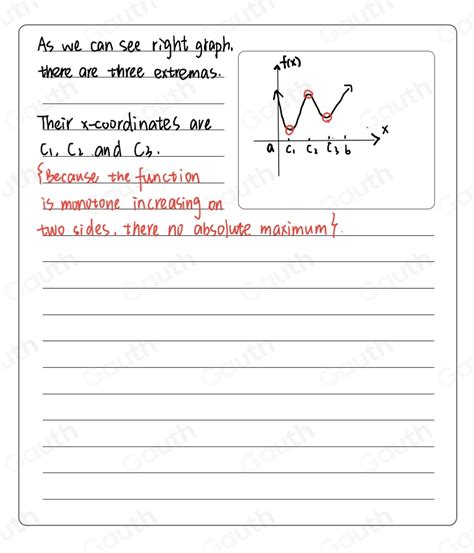 As we can see right graph.
there are three extremas.
Their x-coordinates are
C₁, C₂ and C₃.
{Because the function
is monotone increasing on
two sides, there no absolute maximum}.
f(x)
x
a C₁ C₂ C₃ b
Gauth